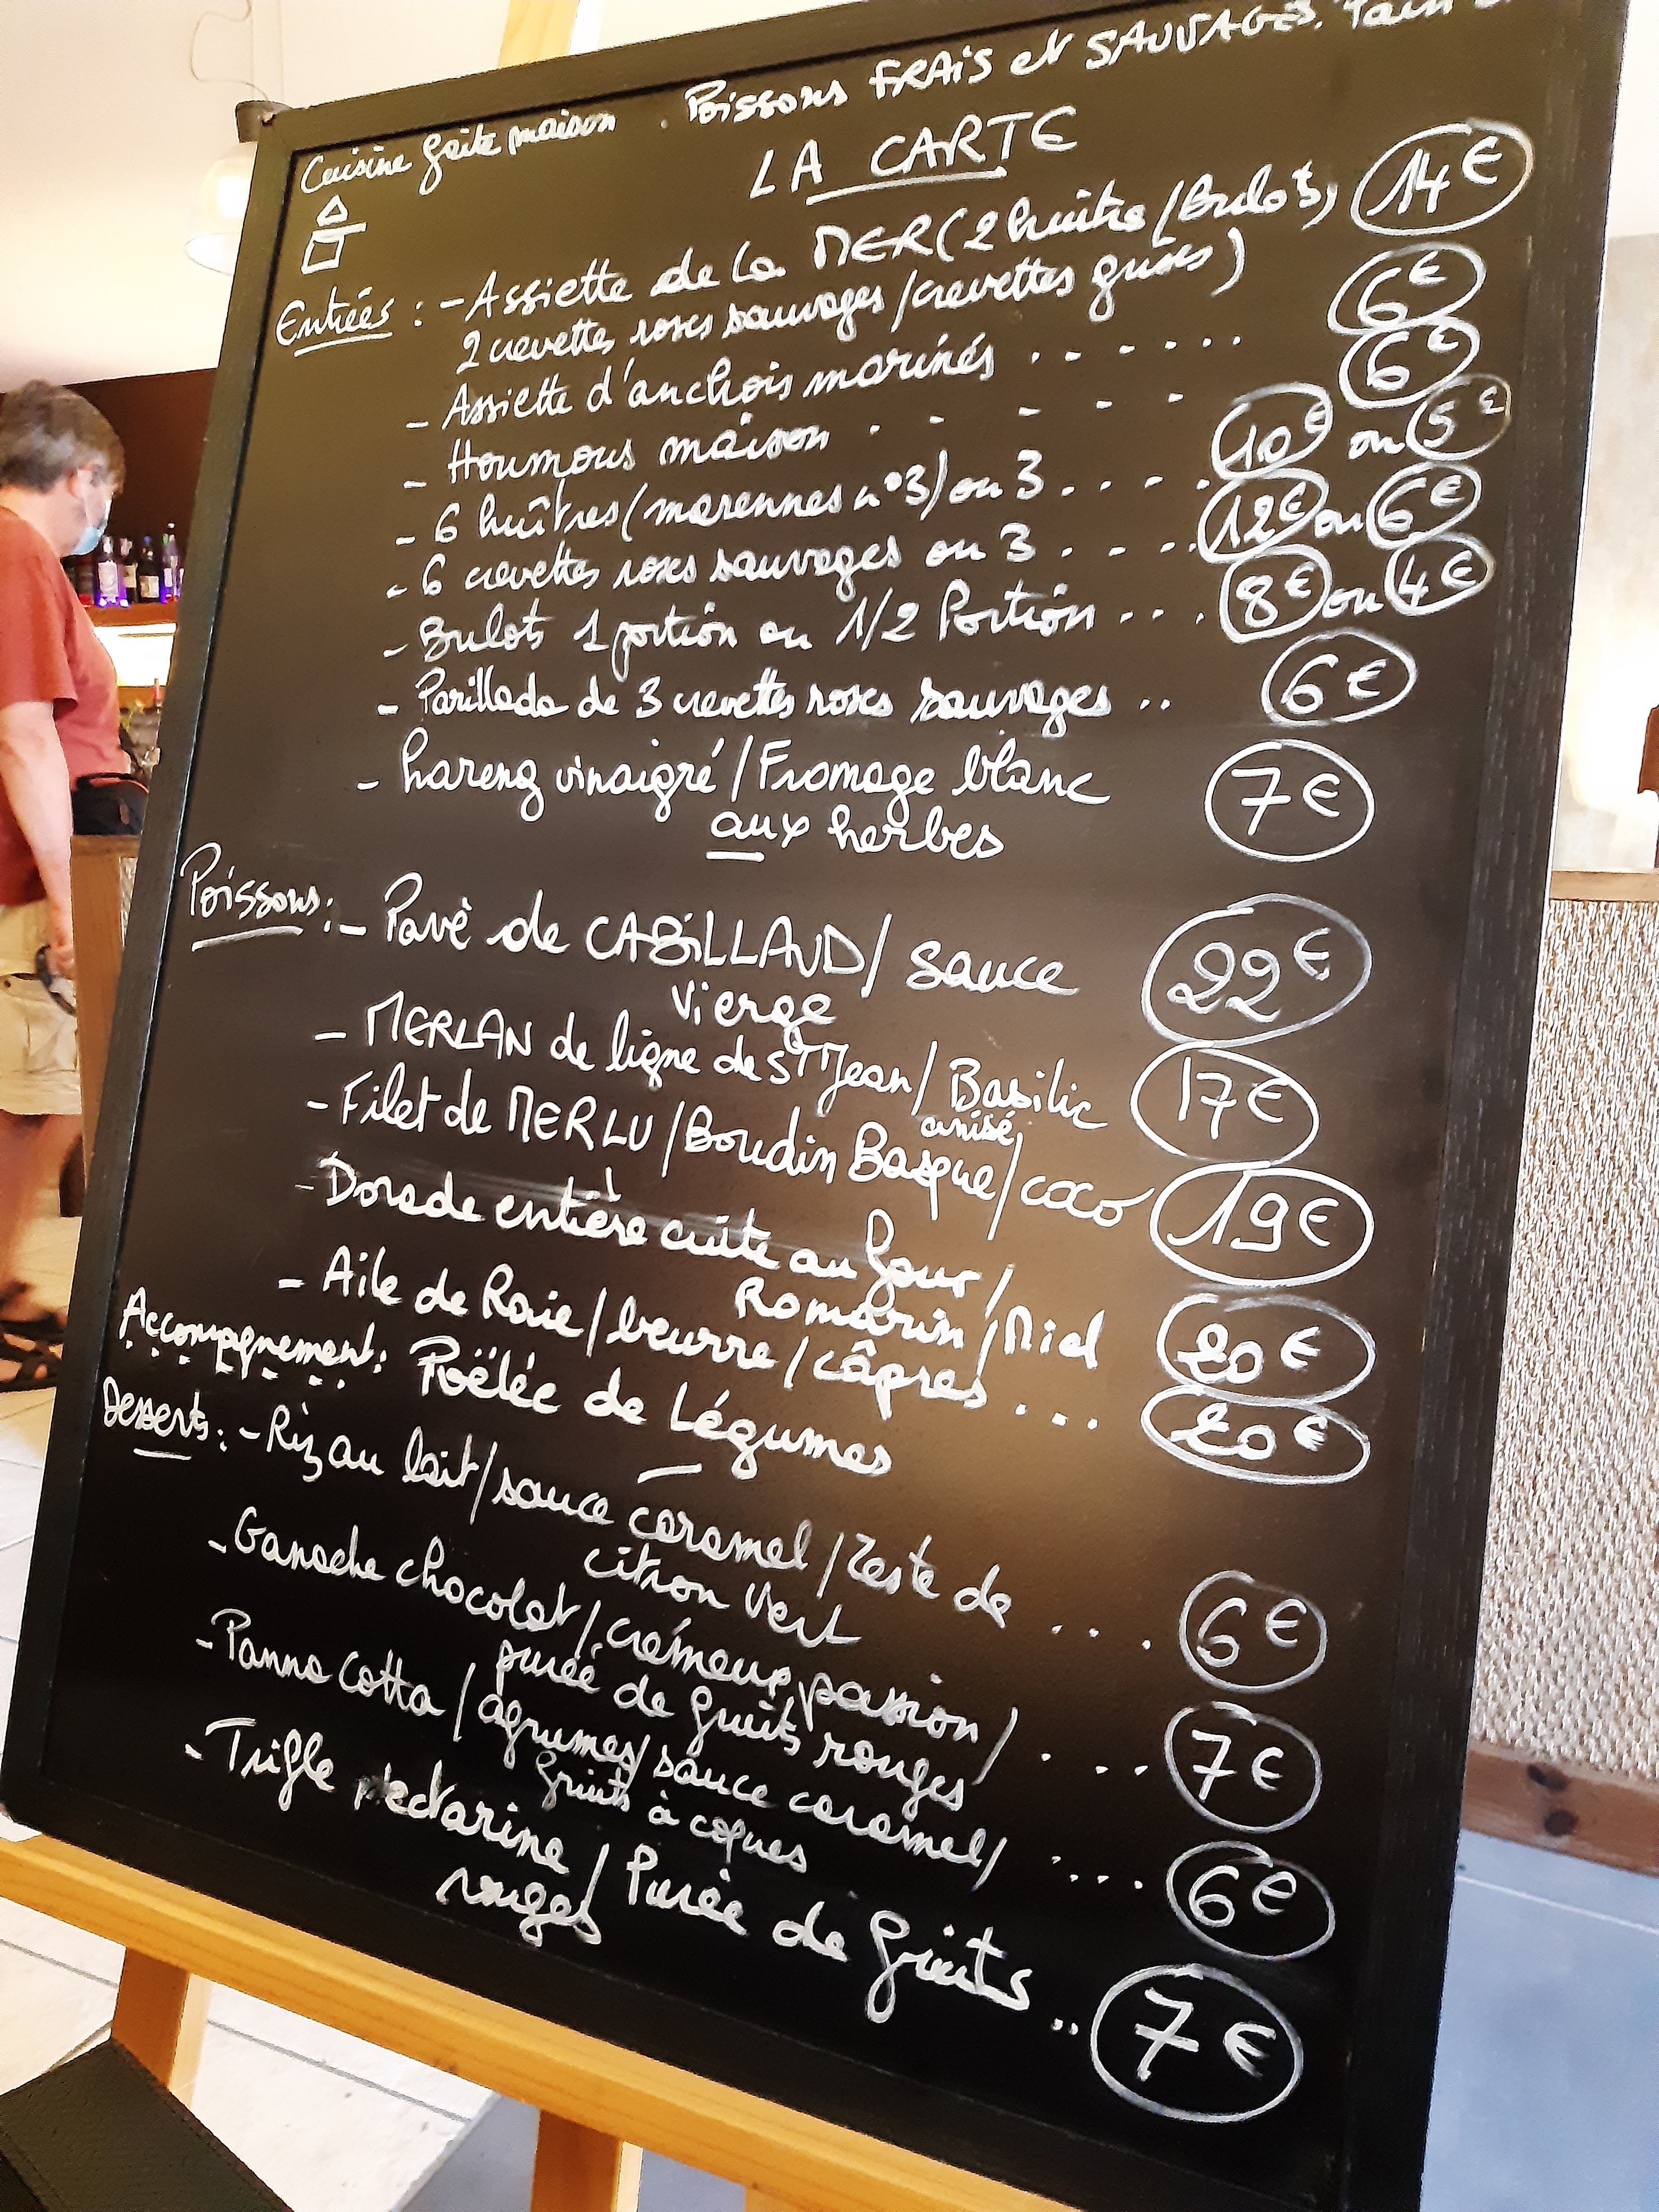 Cuisine faite maison . Poissons FRAIS et SAUVAGES. Pain
LA CARTE
Entrées : - Assiette de la MER (2 huître / Bulots, 14€
2 crevettes roses sauvages / crevettes grises)
- Assiette d'anchois marinés . . . . . . 6€
- Houmous maison . . . . . . 6€
- 6 huîtres (marennes n°3) ou 3 . . . . 10€ ou 5€
- 6 crevettes roses sauvages ou 3 . . . . 12€ ou 6€
- Bulots 1 portion ou 1/2 Portion . . . . 8€ ou 4€
- Parillada de 3 crevettes roses sauvages . . 6€
- hareng vinaigré / Fromage blanc 7€
aux herbes
Poissons : - Pavè de CABILLAUD / sauce 22€
Vierge
- MERLAN de ligne de St Jean / Basilic 17€
anisé
- Filet de MERLU / Boudin Basque / coco 19€
- Dorade entière cuite au four /
Romarin / Miel 20€
- Aile de Raie / beurre / câpres . . . 20€
Accompagnement : Poëlée de Légumes
Desserts : - Riz au lait / sauce caramel / Zeste de . . . . 6€
citron vert
- Ganache chocolat / crémeux passion / . . . . 7€
purée de fruits rouges
- Panna Cotta / agrumes / sauce caramel / . . . . 6€
fruits à coques
- Trifle nectarine / Purée de fruits . . 7€
rouges